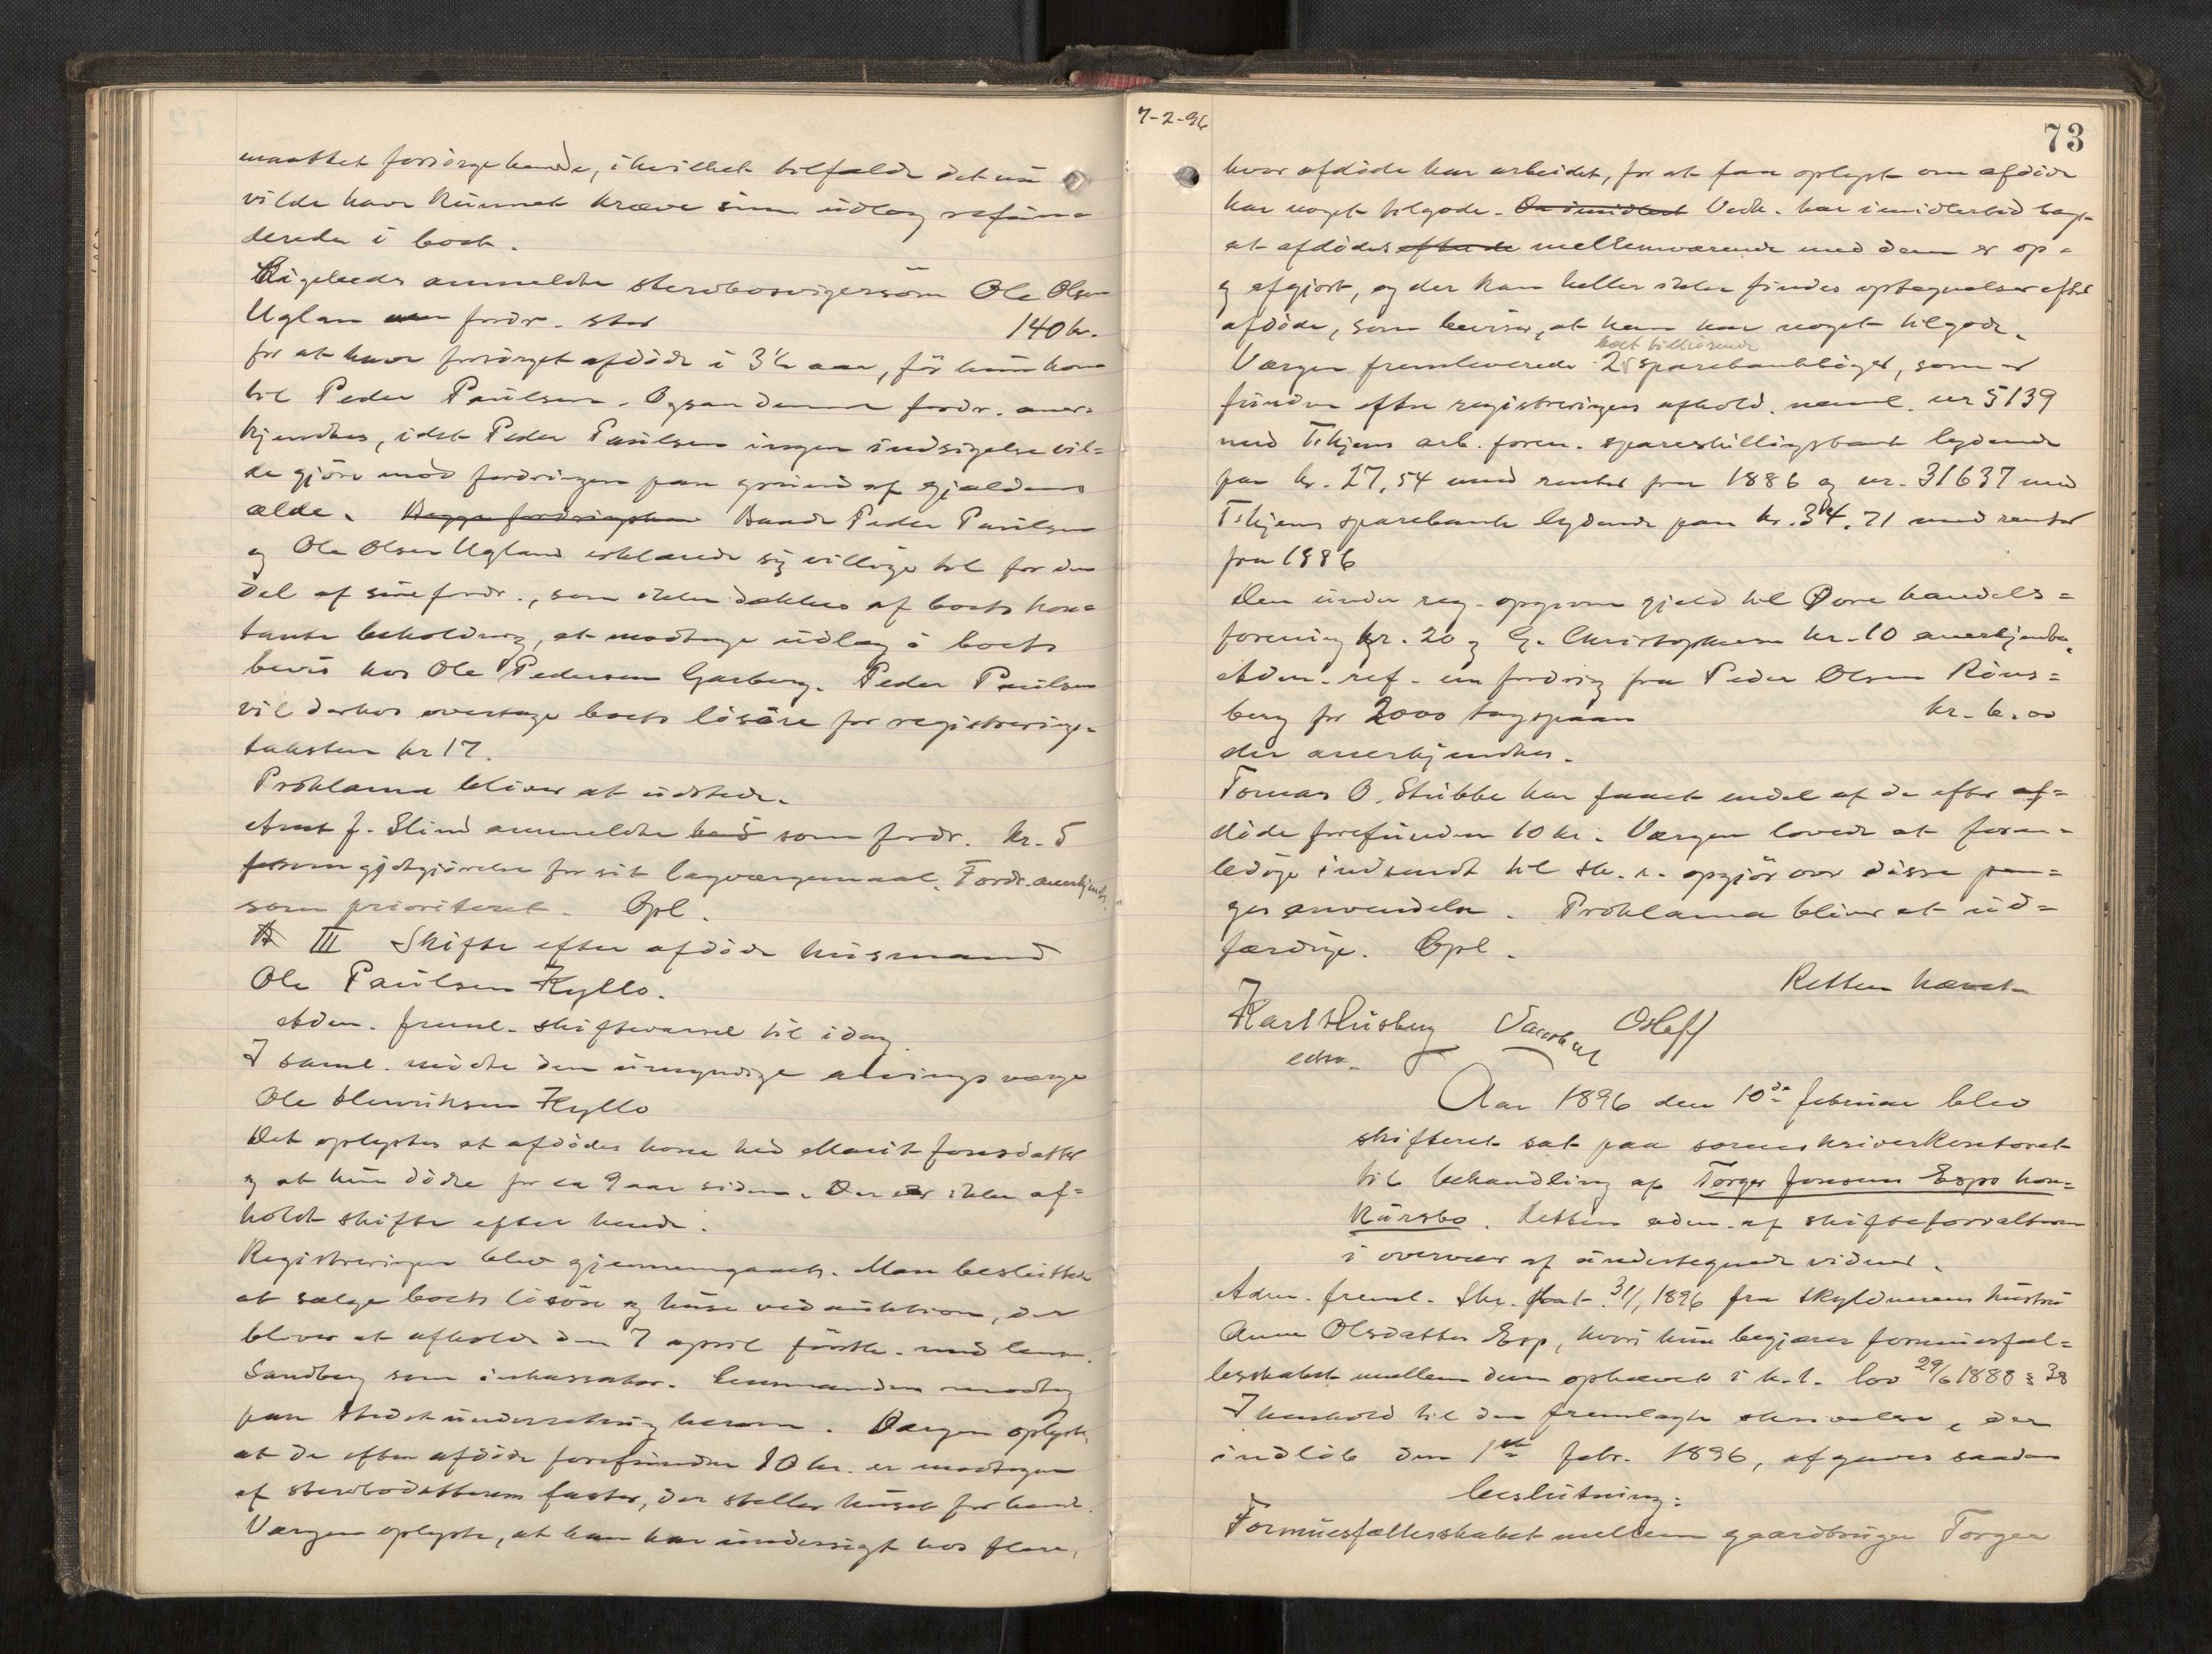 maattet forsörge hende, i hvilket tilfælde det nu
vilde have kunnet kræve sine udlæg refun-
derede i boet.
Ligeledes anmeldte stervbosvigersøn Ole Olsen
Uglan en fordr. stor 140 kr.
for at have forsørget afdöde i 3½ aar, för hun kom
til Peder Paulsen. Ogsaa denne fordr. aner-
kjendtes, idet Peder Paulsen ingen indsigelse vil-
de gjöre mod fordringen paa grund af gjældens
ælde. Begge fordringshav Baade Peder Paulsen
og Ole Olsen Ugland erklærede sig villige til for den
del af sine fordr., som ikke dækkes af boets kon-
tante beholdning, at modtage udlæg i boets
bevis hos Ole Pedersen Garberg. Peder Paulsen
vil derhos overtage boets lösöre for registrerings-
taksten kr 17.
Proklama bliver at udstede.
Arnt J. Slind anmeldte som fordr. kr. 5
som godtgjörelse for sit lagværgemaal. Fordr. anerkjendt
som prioriteret. Opl.
III Skifte efter afdöde husmand
Ole Paulsen Kyllo.
Adm. freml. skiftevarsel til idag.
I saml. mödte den umyndige arvings værge
Ole Henriksen Kyllo
Det oplystes at afdödes kone hed Marit Jonsdatter
og at hun döde for ca 9 aar siden. Der er ikke af-
holdt skifte efter hende.
Registreringen blev gjennemgaaet. Man besluttede
at sælge boets lösöre og huse ved auktion, der
bliver at afholde den 7 april förstk. med lensm.
Sandberg som inkassator. Lensmanden modtog
paa stedet underretning herom. Værgen oplyste,
at de efter afdöde forefundne 10 kr. er modtagne
af stervbodatterens faster, der steller huset for hende.
Værgen oplyste, at han har undersögt hos flere,
7-2-96
73
hvor afdöde har arbeidet, for at faa oplyst om afdöde
har noget tilgode. De imidlert Vedk. har imidlertid sagt
at afdödes mellemværende med dem er op-
og afgjort, og der kan heller ikke findes optegnelser efter
afdöde, som beviser, at han har noget tilgode.
boet tilhörende
Værgen fremleverede 2 sparebankböger, som er
fundne efter registreringens afhold. naml. nr 5139
med T.hjems arb. foren. spareskillingsbank lydende
paa kr. 27,54 med renter fra 1886 og nr. 31637 med
T.hjems sparebank lydende paa kr. 34.71 med renter
fra 1886
Den under reg. opgivne gjæld til Övre handels-
forening kr. 20 og G. Christophersen kr. 10 anerkjendtes.
Adm. ref. en fordring fra Peder Olsen Röns-
berg for 2000 tagspaan kr. 6.00
der anerkjendtes.
Tomas O. Stubbe har faaet endel af de efter af-
döde forefundne 10 kr. Værgen lovede at foran-
ledige indsendt til sk. r. opgjör over disse pen-
ges anvendelse. Proklama bliver at ud-
færdige. Opl.
Retten hævet
Karl Husberg Osleff
Aar 1896 den 10de februar blev
skifteret sat paa sorenskriverkontoret
til behandling af Torger Jonsens Esps kon-
kursbo. Retten adm. af skifteforvalteren
i overvær af undertegnede vidner.
Adm. freml. Skr. dat. 31/1 1896 fra skyldnerens hustru
Anne Olsdatter Esp, hvori hun begjærer formuesfæl-
lesskabet mellem dem ophævet i h.t. lov 29/6 1888 § 38
I henhold til den fremlagte skrivelse, der
indlöb den 1ste febr. 1896, afgaves saadan
beslutning:
Formuesfællesskabet mellem gaardbruger Torger